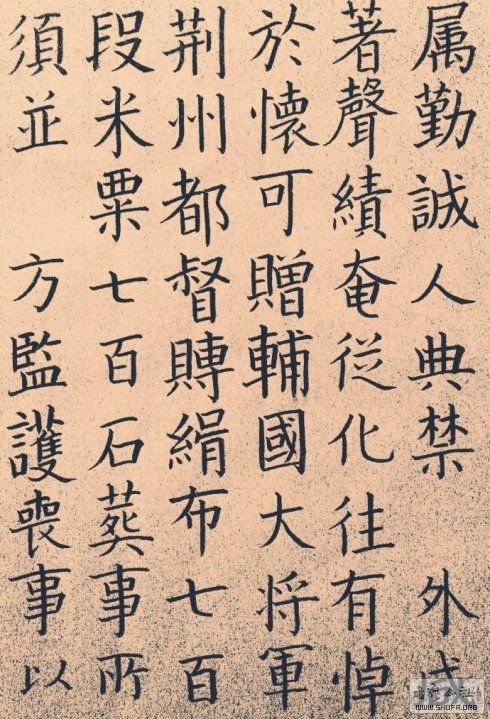 属勤誠人典禁 外
著聲績奄従化往有悼
於懷可贈輔國大将軍
荆州都督賻絹布七百
段米粟七百石葬事所
須並 方監護喪事以
WWW.SHUFA.ORG